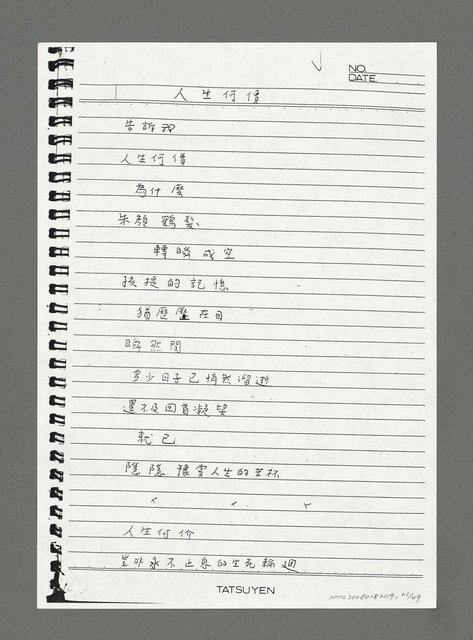 NO.
DATE
人生何價
告訴我
人生何價
為什麼
朱顏鶴髮
轉瞬成空
孩提的記憶
猶歷歷在目
瞬然間
多少日子已悄然溜逝
還不及回首凝望
就已
隱隱 人生的苦杯
× × ×
人生何价
豈非永不止息的生死輪迴
TATSUYEN
NMTL20080182119, 21/49